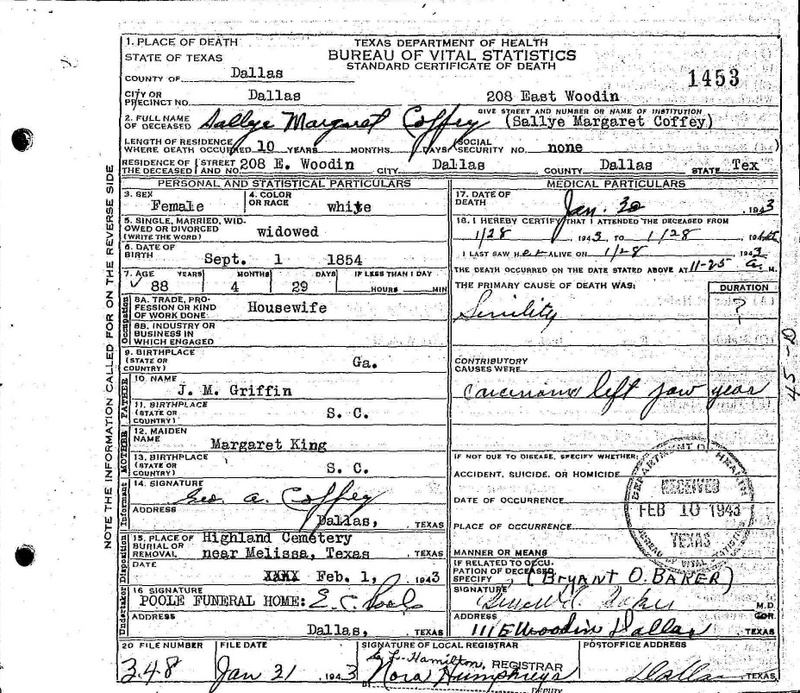 1. PLACE OF DEATH
STATE OF TEXAS
TEXAS DEPARTMENT OF HEALTH
BUREAU OF VITAL STATISTICS
STANDARD CERTIFICATE OF DEATH
1453
COUNTY OF Dallas
CITY OR PRECINCT NO. Dallas 208 East Woodin
GIVE STREET AND NUMBER OR NAME OF INSTITUTION
2. FULL NAME OF DECEASED Sallye Margaret Coffey (Sallye Margaret Coffey)
LENGTH OF RESIDENCE WHERE DEATH OCCURRED 10 YEARS MONTHS DAYS (SOCIAL SECURITY NO. none
RESIDENCE OF THE DECEASED (STREET AND NO. 208 E. Woodin CITY Dallas COUNTY Dallas STATE Tex
PERSONAL AND STATISTICAL PARTICULARS
3. SEX Female
4. COLOR OR RACE white
5. SINGLE, MARRIED, WIDOWED OR DIVORCED (WRITE THE WORD) widowed
6. DATE OF BIRTH Sept. 1 1854
7. AGE YEARS MONTHS DAYS IF LESS THAN 1 DAY
88 4 29 HOURS MIN
Occupation
8A. TRADE, PROFESSION OR KIND OF WORK DONE Housewife
8B. INDUSTRY OR BUSINESS IN WHICH ENGAGED
9. BIRTHPLACE (STATE OR COUNTRY) Ga.
FATHER
10. NAME J. M. Griffin
11. BIRTHPLACE (STATE OR COUNTRY) S. C.
MOTHER
12. MAIDEN NAME Margaret King
13. BIRTHPLACE (STATE OR COUNTRY) S. C.
Informant
14. SIGNATURE Geo. A. Coffey
ADDRESS Dallas, , TEXAS
Disposition
15. PLACE OF BURIAL OR REMOVAL Highland Cemetery
near Melissa, Texas , TEXAS
DATE XXXX Feb. 1, , 1943
Undertaker
16 SIGNATURE
POOLE FUNERAL HOME: E. C. Poole
ADDRESS Dallas, , TEXAS
MEDICAL PARTICULARS
17. DATE OF DEATH Jan. 30 , 1943
18. I HEREBY CERTIFY THAT I ATTENDED THE DECEASED FROM
1/28 , 1943 TO 1/28
I LAST SAW her ALIVE ON 1/28 1943
THE DEATH OCCURRED ON THE DATE STATED ABOVE AT 11-25 a. M.
THE PRIMARY CAUSE OF DEATH WAS: DURATION
Senility ?
CONTRIBUTORY CAUSES WERE
carcinoma left jaw year
45-D
IF NOT DUE TO DISEASE, SPECIFY WHETHER:
ACCIDENT, SUICIDE, OR HOMICIDE
DATE OF OCCURRENCE
PLACE OF OCCURRENCE
MANNER OR MEANS
DEPARTMENT OF HEALTH
RECEIVED
FEB 10 1943
TEXAS
BUREAU OF VITAL STATISTICS
IF RELATED TO OCCUPATION OF DECEASED, SPECIFY (BRYANT O. BAKER)
SIGNATURE Baker M.D.
ADDRESS 111 E Woodin Dallas COR.
, TEXAS
20 FILE NUMBER 348
FILE DATE Jan 31 , 1943
SIGNATURE OF LOCAL REGISTRAR
Hamilton, REGISTRAR
Nora Humphreys
DEPUTY
POSTOFFICE ADDRESS
Dallas , TEXAS
NOTE THE INFORMATION CALLED FOR ON THE REVERSE SIDE